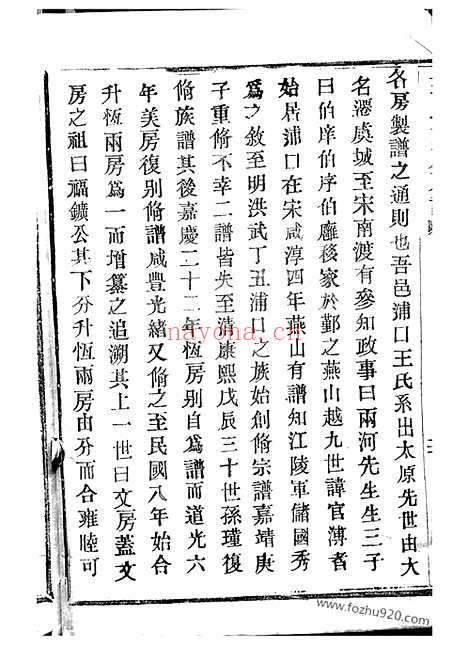 各房製譜之通則也吾邑浦口王氏系出太原先世由大
名遷虞城至宋南渡有參知政事曰兩河先生生三子
曰伯庠伯序伯廱移家於鄞之燕山越九世諱官溥者
始居浦口在宋咸淳四年燕山有譜知江陵軍儲國秀
爲之敘至明洪武丁丑浦口之族始創脩宗譜嘉靖庚
子重脩不幸二譜皆失至清康熙戊辰三十世孫瓘復
脩族譜其後嘉慶二十二年恆房別自爲譜而道光六
年美房復別脩譜咸豐光緒又脩之至民國八年始合
升恆兩房爲一而增纂之追溯其上一世曰文房蓋文
房之祖曰福鑛公其下分升恆兩房由分而合雍睦可
nayona.cn
www.fozhu920.com